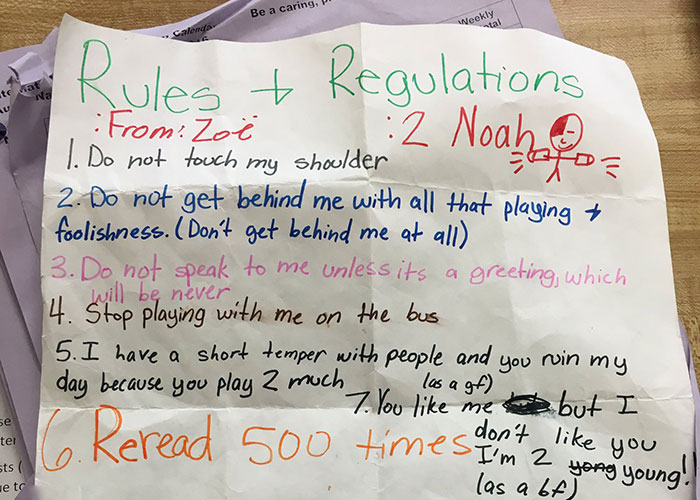 Be a caring, p
Weekly
Calenda
Rules + Regulations
:From: Zoë :2 Noah
1. Do not touch my shoulder
2. Do not get behind me with all that playing +
foolishness. (Don't get behind me at all)
3. Do not speak to me unless its a greeting, which
will be never
4. Stop playing with me on the bus
5. I have a short temper with people and you ruin my
day because you play 2 much
6. Reread 500 times
7. You like me (as a gf) but I
don't like you
I'm 2 yong young!!
(as a bf)